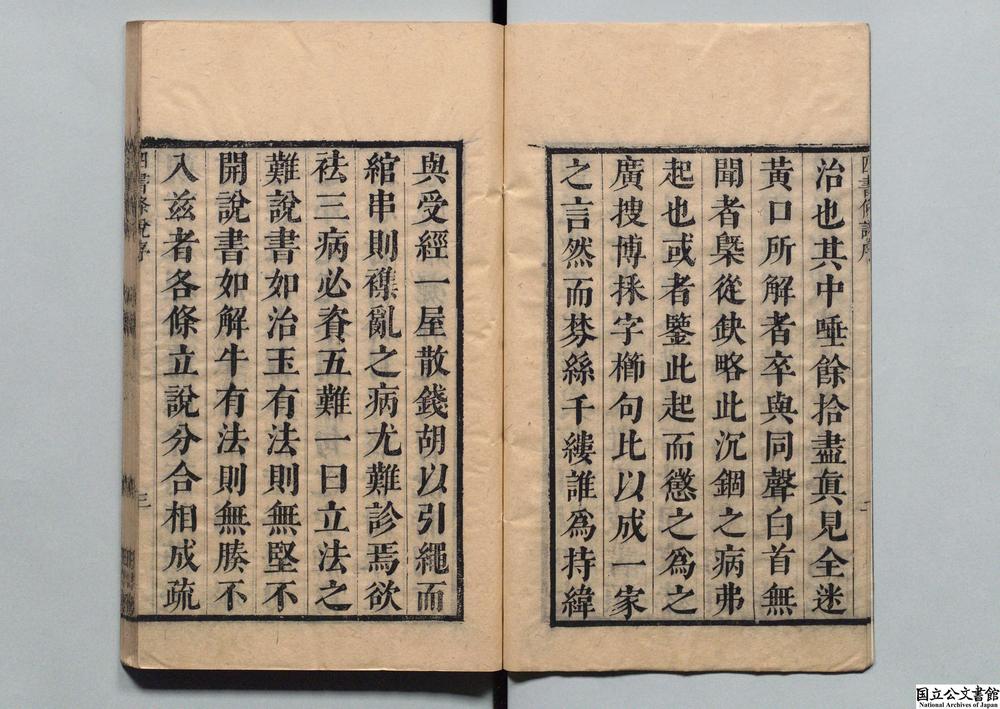 治也其中唾餘拾盡眞見全迷
黃口所解者卒與同聲白首無
聞者槩從缺略此沉錮之病弗
起也或者鑒此起而懲之爲之
廣搜博採字櫛句比以成一家
之言然而棼絲千縷誰爲持緯
與受經一屋散錢胡以引繩而
綰串則襍亂之病尤難診焉欲
祛三病必資五難一曰立法之
難說書如治玉有法則無堅不
開說書如解牛有法則無腠不
入茲者各條立說分合相成疏
四書條說序
三
国立公文書館
National Archives of Japan